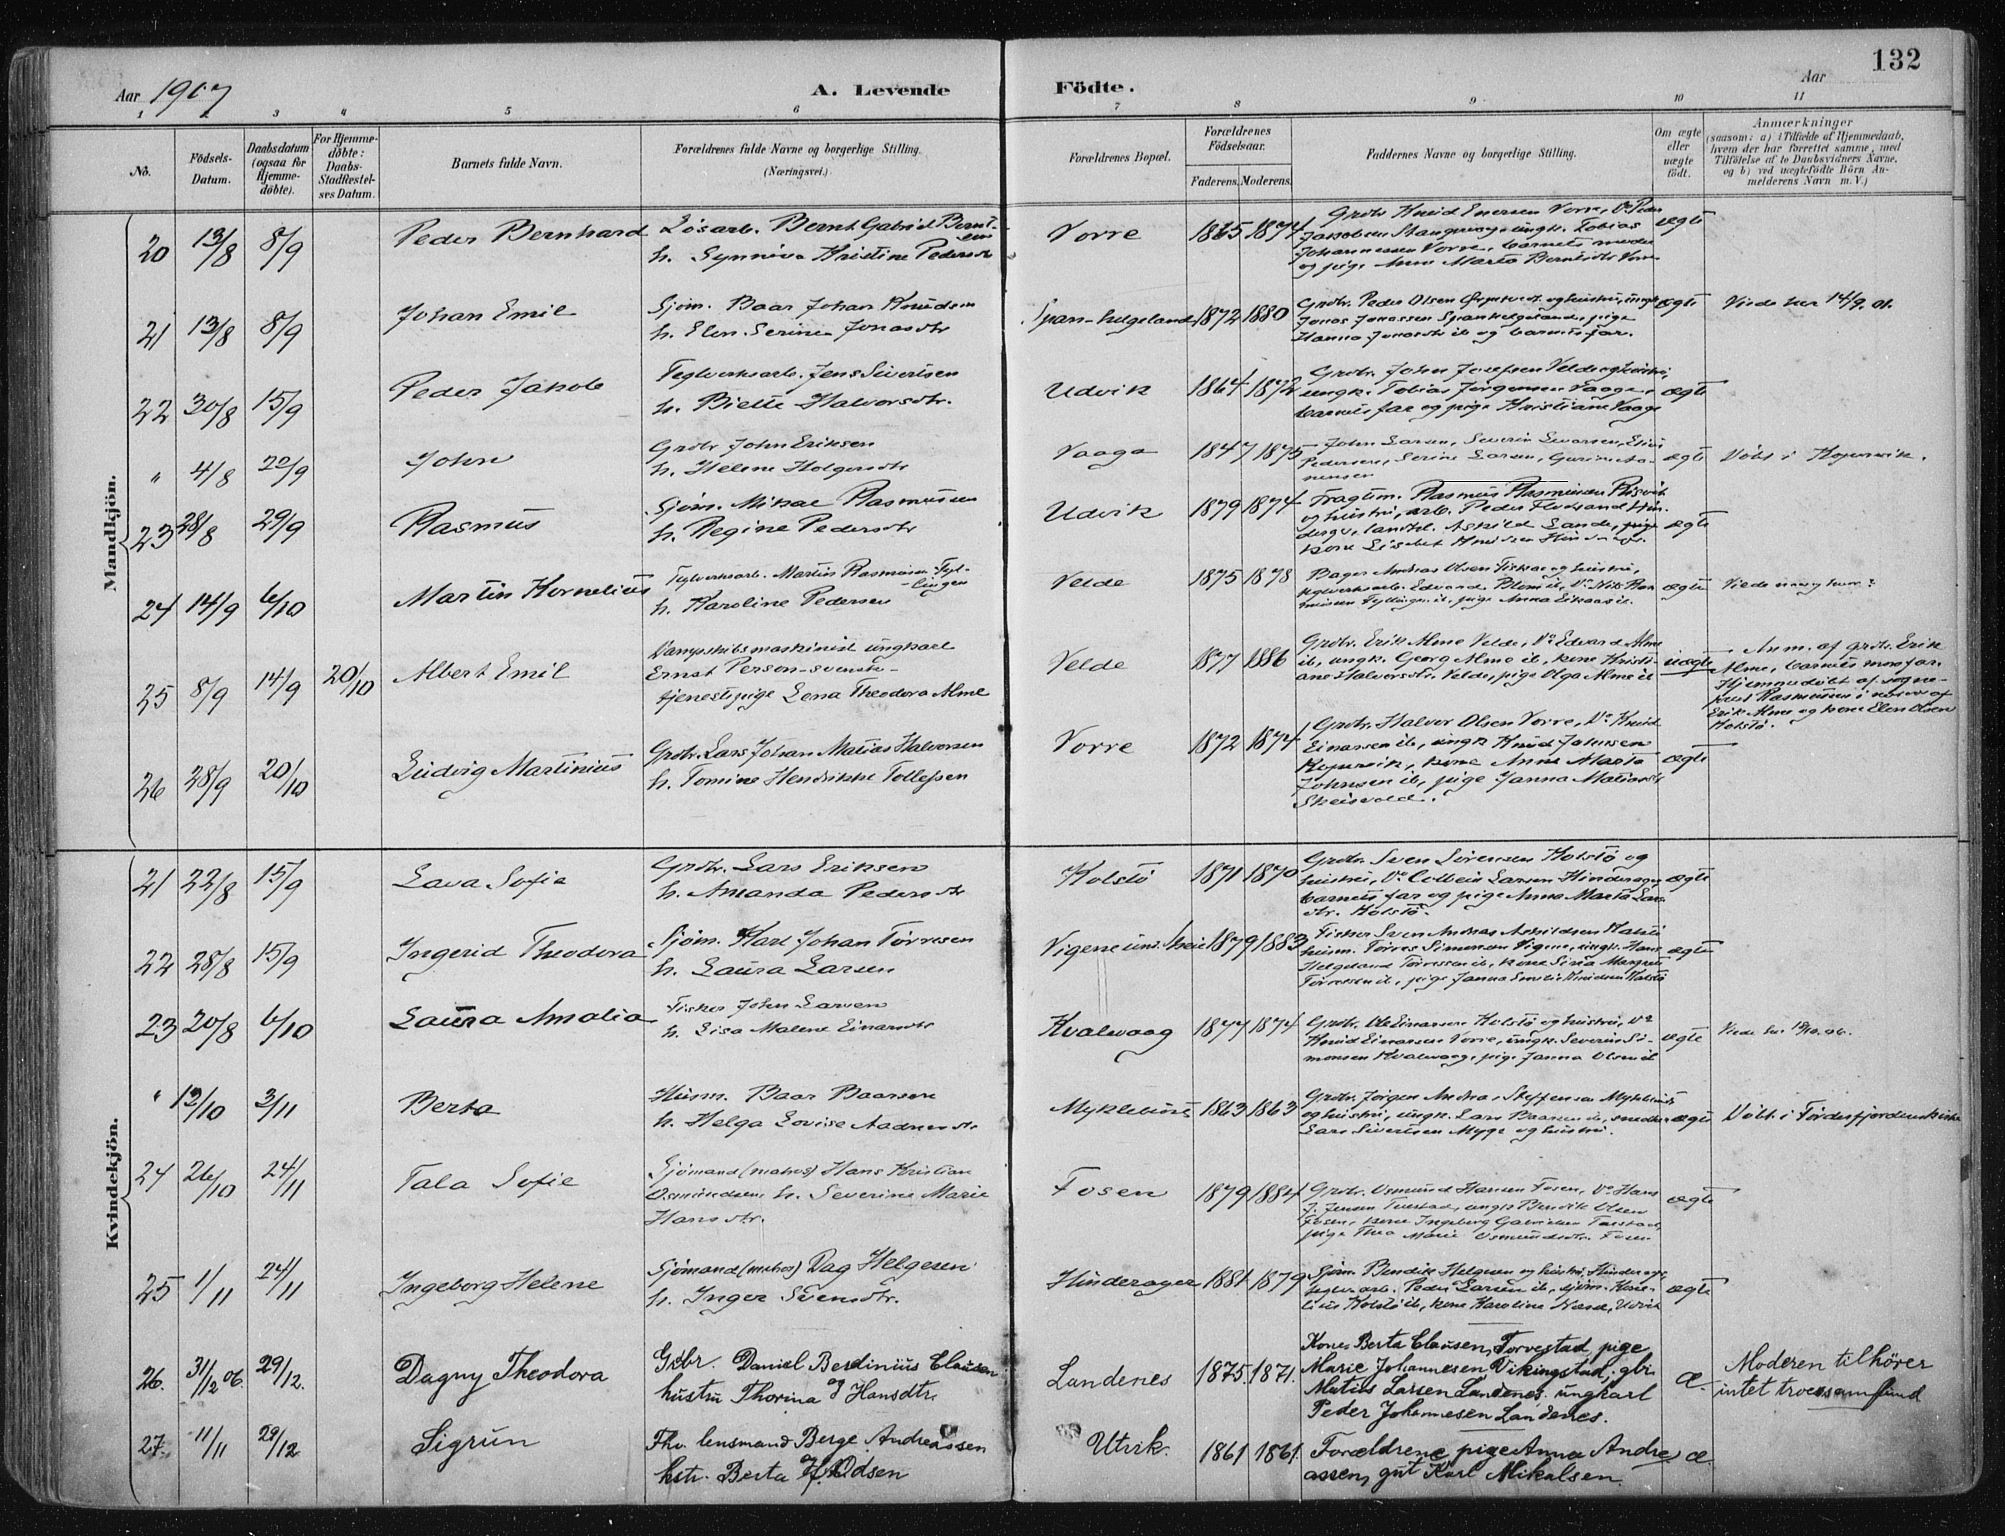 132
Aar 1907 A. Levende Födte. Aar
1 2 3 4 5 6 7 8 9 10 11
No.
Födsels-Datum.
Daabsdatum (ogsaa for Hjemme-döbte).
For Hjemme-döbte: Daabs-Stadfæstel-ses Datum.
Barnets fulde Navn.
Forældrenes fulde Navne og borgerlige Stilling.
(Næringsvei.)
Forældrenes Bopæl.
Forældrenes Födselsaar.
Faderens. Moderens.
Faddernes Navne og borgerlige Stilling.
Om ægte eller uægte födt.
Anmærkninger
(saasom: a) i Tilfælde af Hjemmedaab,
hvem der har forrettet samme, med
Tilföielse af to Daabsvidners Navne,
og b) ved uægtefödte Börn An-
melderens Navn m. V.)
Mandkjön.
20 13/8 8/9 Peder Bernhard Løsarb. Bernt Gabriel Bernt-
sen
h. Synnive Kristine Pedersdtr
Vorre 1865 1874
Grdbr Knud Enersen Vorre, Do Peder
Jakobsen Stangeway, ungk. Tobias
Johannessen Vorre, barnets moder
og pige Anne Marta Berntsdtr Vorre
ægte
21 13/8 8/9 Johan Emil Sjöm. Baar Johan Knudsen
h. Elen Serine Jonasdtr
Span-helgeland 1872 1880
Grdbr. Peder Olsen og hustru, ungk
Jonas Jonassen Spanhelgeland, pige
Hanna Jonasdtr ib og barnets far.
ægte Viede her 14/9 01.
22 30/8 15/9 Peder Jakob Teglverksarb. Jens Sivertsen
h. Biette Halvorsdtr.
Udvik 1864 1872
Grdbr. John Josefsen Velde og hustru,
ungk. Tobias Jørgensen Vaage,
barnets far og pige Kristiane Vaage
ægte
" 4/8 22/9 John Grdbr John Eriksen
h. Helene Holgersdtr
Vaaga 1847 1875
John Larsen, Severin Sevarsen,
Pedersen, Serine Larsen,
ægte Döbt i Kopervik.
23 28/8 29/9 Rasmus Sjöm. Mikal Rasmussen
h. Regine Pedersdtr
Udvik 1879 1874
Fragtm. Rasmus Rasmussen
og hustru, arb. Peder
landhl. Askild Lande, pige
kone Lisabet Knudsen
ægte
24 14/9 6/10 Martin Kornelius Teglverksarb. Martin Rasmussen Fyl-
-lingen
h. Karoline Pedersen
Velde 1875 1878
Bager Andreas Olsen Fiskaa og hustru,
teglverksarb. Edvard Blom ib, Do Nils Ras-
mussen Fyllingen ib, pige Anna Eikaas ib.
ægte
25 8/9 14/9 20/10 Albert Emil Dampskibsmaskinist ungkarl
Ernst Person - svenske -
tjenestepige Lena Theodora Alme
Velde 1877 1886
Grdbr. Erik Alme Velde, Do Edvard Alme
ib, ungk. Georg Alme ib, kone Kristi-
ane Halvorsdtr. Velde, pige Olga Alme ib
uægte
Anm. af grdbr. Erik
Alme, barnets morfar.
Hjemmedöbt af sogne-
prest Rasmussen i nærv. af
Erik Alme og kone Elen Olsen
Kolstö.
26 28/9 20/10 Ludvig Martinius Grdbr. Lars Johan Matias Halvorsen
h. Tomine Henrikke Tollefsen
Vorre 1872 1874
Grdbr. Halvor Olsen Vorre, Do Knud
Einarsen ib, ungk Knud Johnsen
Kopervik, kone Anne Marta
Johnsen ib, pige Janna Matiasdtr
Skeisvold.
ægte
Kvindekjön.
21 22/8 15/9 Lava Sofie Grdbr. Lars Eriksen
h. Amanda Pedersdtr
Kolstö 1871 1870
Grdbr. Sven Sörensen Kolstö og
hustru, Do Colbein Larsen Hinderager,
barnets far og pige Anna Marta Lars-
dtr. Kolstö.
ægte
22 28/8 15/9 Ingerid Theodora Sjöm. Karl Johan Törresen
h. Laura Larsen
Vigene und. Skeie 1879 1883
Fisker Sven Andreas Askildsen Kalstö
husm. Törres Simonsen Vigene, ungk. Hans
Helgeland Törressen ib, kone Sina Margrete
Törressen ib, pige Janna Emelie Knudsen Kalstö
ægte
23 20/8 6/10 Laura Amalia Fisker John Larsen
h. Lisa Malene Einarsdtr
Kvalevaag 1877 1874
Grdbr. Ole Einarsen Kolstö og hustru, Do
Knud Einarsen Vorre, ungk. Severin Si-
monsen Kvalevaag, pige Janna Olsen ib
ægte
" 12/10 3/11 Berta Husm. Baar Baarsen
h. Helga Lovise Aadnesdtr.
Myklebust 1863 1863
Grdbr. Jörgen Andreas Steffensen Myklebust
og hustru, ungk. Lars Baarsen ib, snedker
Lars Sivertsen Myge og hustru.
ægte Döbt i Fördesfjordens kirke
24 26/10 24/11 Tala Sofie Sjömand (matros) Hans Kristian
Osmundsen, h. Severine Marie
Hansdtr.
Fosen 1879 1884
Grdbr. Osmund Hansen Fosen, Do Hans
J. Jensen Tuestad, ungk Bendik Olsen
Fosen, kone Ingeborg Gabrielsen Tuestad,
pige Thea Marie Osmundsdtr. Fosen
ægte
25 1/11 24/11 Ingeborg Helene Sjömand (matros) Dag Helgesen
h. Inger Svensdtr.
Hinderager 1881 1879
Sjöm. Bendik Helgesen og hustru, Hinderager,
teglv.arb. Peder Larsen ib, sjöm. Korne-
lius Kolstö ib, kone Karoline Næsse, Udvik
ægte
26. 31/12 06. 29/12. Dagny Theodora Gdbr. Daniel Berdinius Clausen
og
hustru Thorina Hansdtr.
Landenes 1875. 1871.
Kone Berta Clausen, Torvestad, pige
Marie Johannesen Vikingstad; gbr.
Matias Larsen Landenes, ungkarl
Peder Johannesen Landenes.
Æ.
Moderen tilhörer
intet troessamfund
27. 11/11 29/12 Sigrun Fhv. lensmand Berge Andreassen
hstr. Berta H. Odsen
Utvik. 1861 1861.
Forældrene, pige Anna Andre-
assen, gut Karl Mikalsen.
Æ.